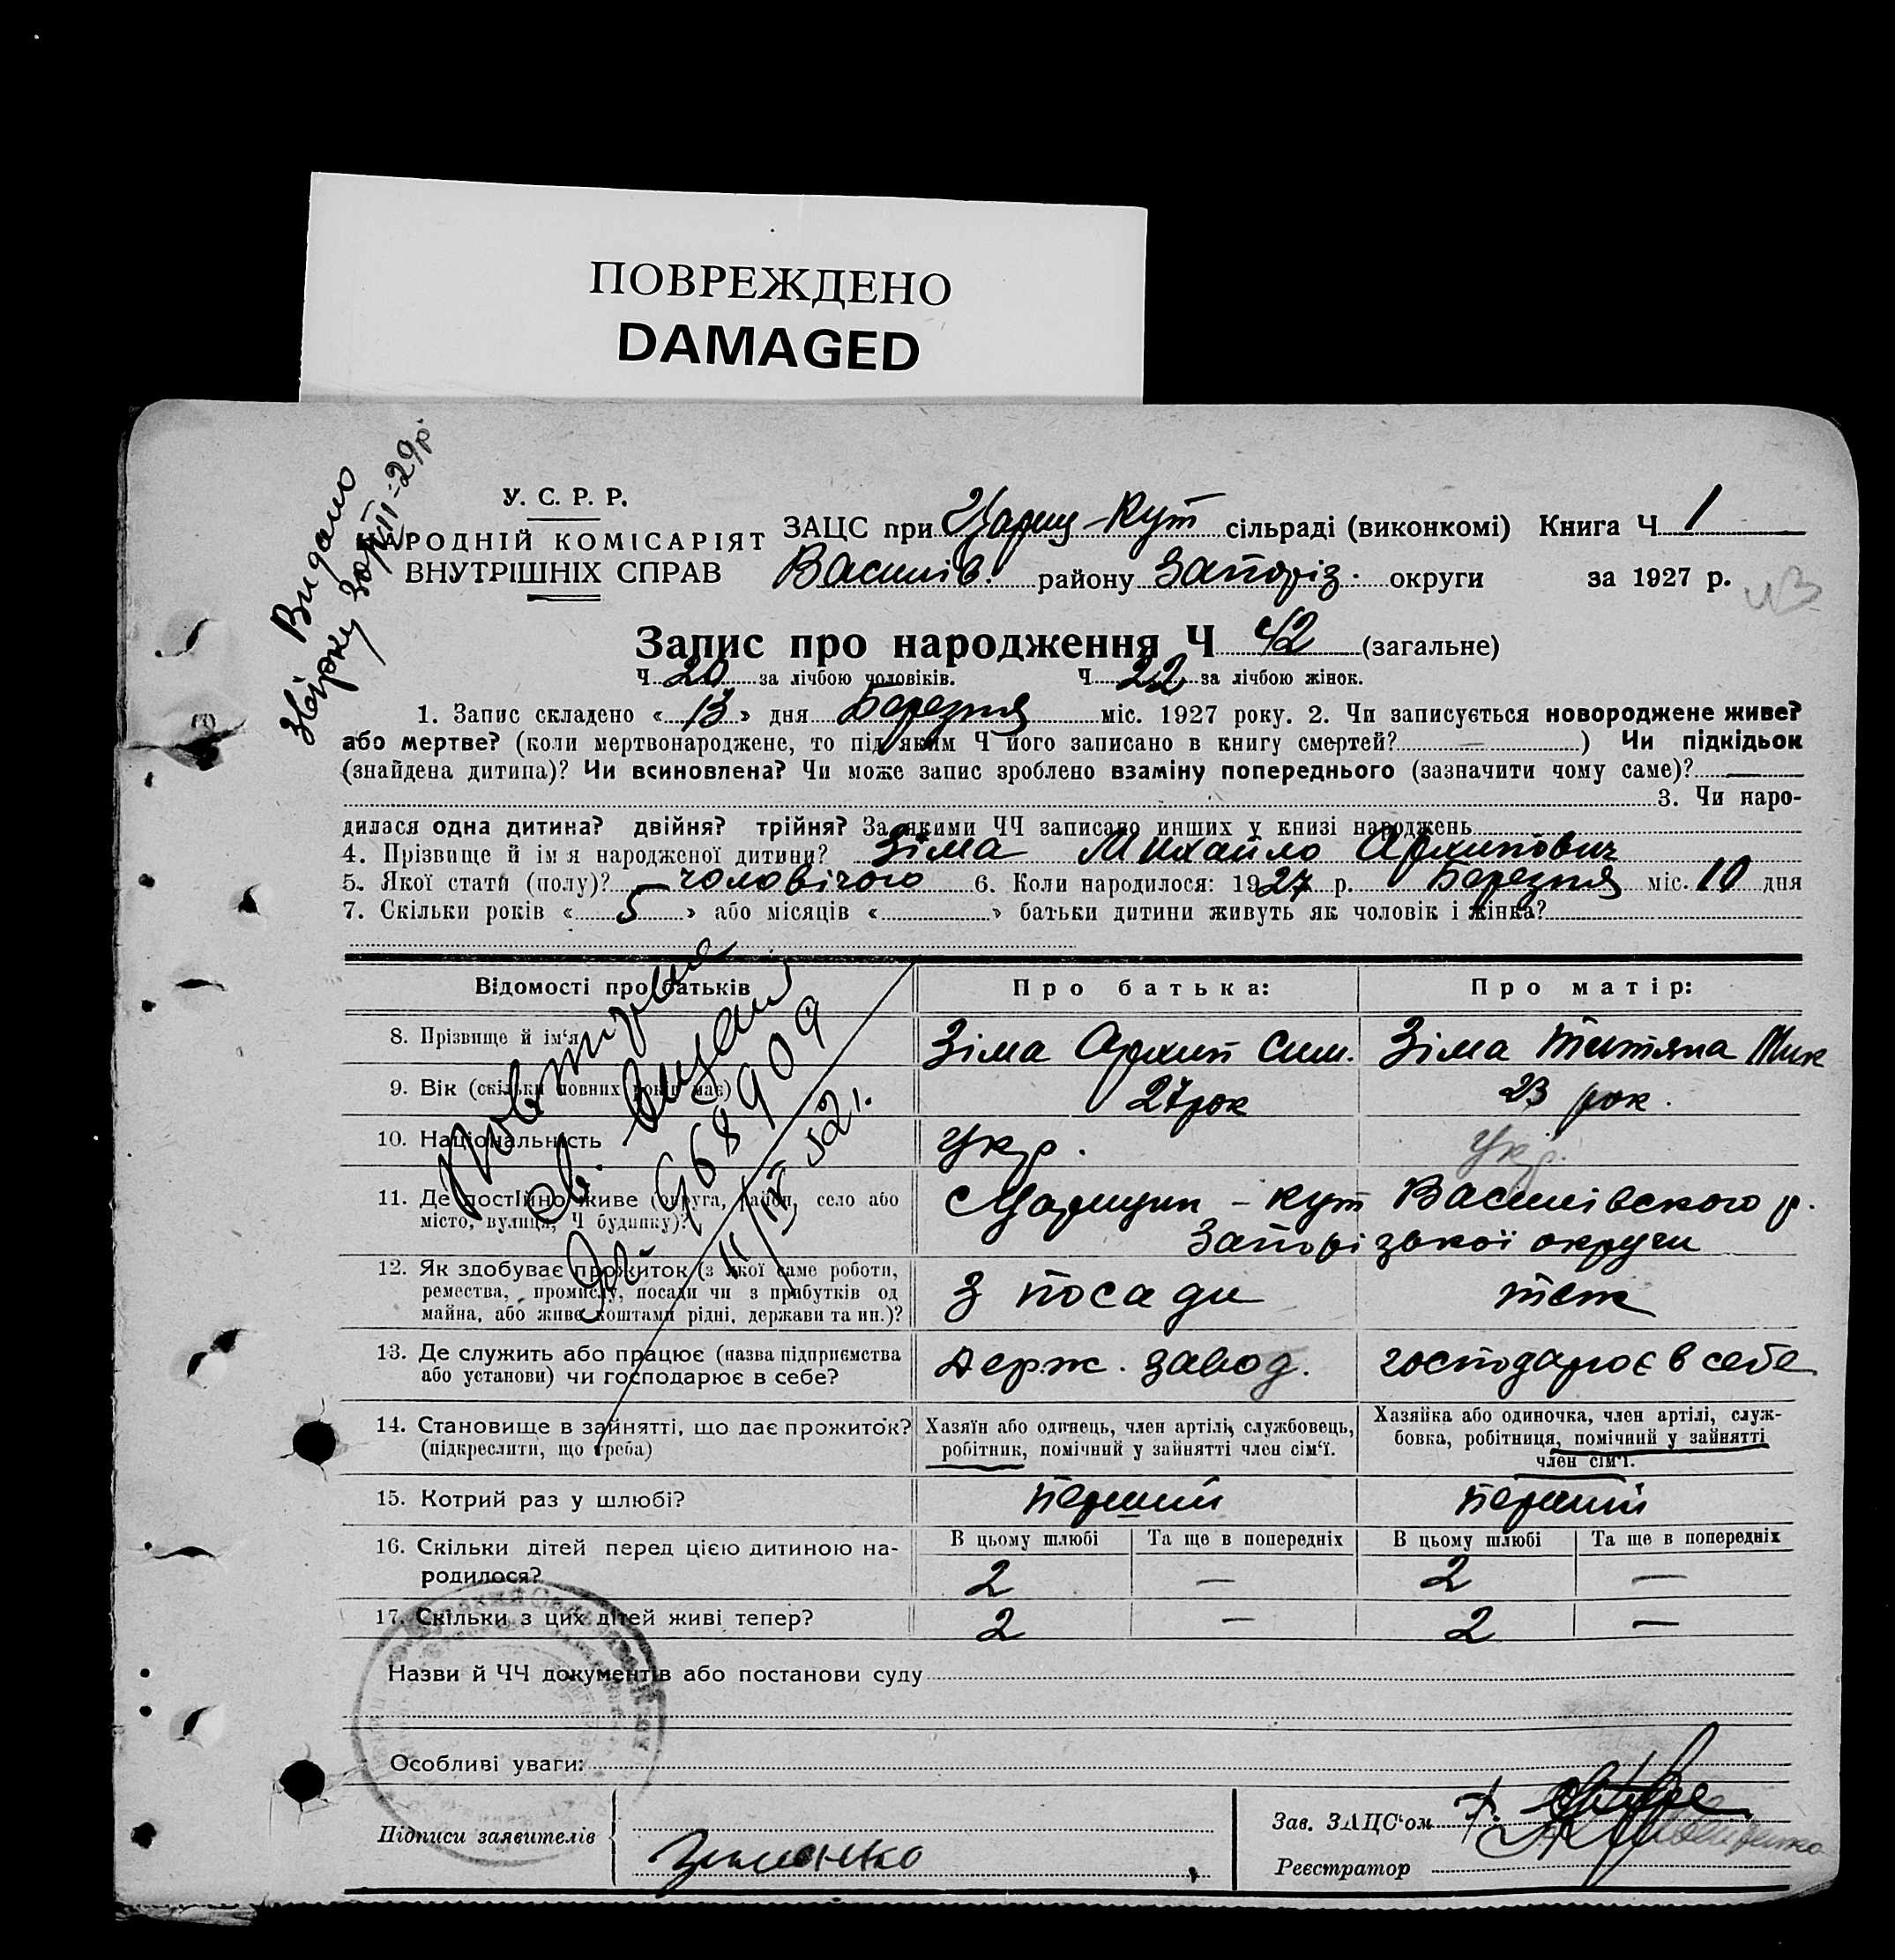 ПОВРЕЖДЕНО
DAMAGED
Видано
звірку 30/
-29р.
У. С. Р. Р.
НАРОДНІЙ КОМІСАРІЯТ
ВНУТРІШНІХ СПРАВ
ЗАЦС при Цариц-Кут сільраді (виконкомі) Книга Ч 1
Василів. району Запоріз. округи за 1927 р.
Запис про народження Ч 42 (загальне)
Ч 20 за лічбою чоловіків. Ч 22 за лічбою жінок.
1. Запис складено « 13 » дня Березня міс. 1927 року. 2. Чи записується новороджене живе?
або мертве? (коли мертвонароджене, то під яким Ч його записано в книгу смертей? — ) Чи підкідьок
(знайдена дитина)? Чи всиновлена? Чи може запис зроблено взаміну попереднього (зазначити чому саме)? —
3. Чи наро-
дилася одна дитина? двійня? трійня? За якими ЧЧ записано инших у книзі народжень
4. Прізвище й ім'я народженої дитини? Зіма Михайло Архипович
5. Якої стати (полу)? чоловічого 6. Коли народилося: 1927 р. Березня міс. 10 дня
7. Скільки років « 5 » або місяців « » батьки дитини живуть як чоловік і жінка?
Відомості про батьків Про батька: Про матір:
8. Прізвище й ім'я Зіма Архип Сим. Зіма Титяна Мик
9. Вік (скільки повних років має) 27 рок 23 рок.
10. Національність Укр. Укр.
11. Де постійно живе (округа, район, село або
місто, вулиця, Ч будинку)? Царицин - кут Василівского р.
Запорізької округи
12. Як здобуває прожиток (з якої саме роботи,
ремества, промислу, посади чи з прибутків од
майна, або живе коштами рідні, держави та ин.)? З посади теж
13. Де служить або працює (назва підприємства
або установи) чи господарює в себе? держ. завод. господарює в себе
14. Становище в зайнятті, що дає прожиток?
(підкреслити, що треба)
Хазяїн або одинець, член артілі, службовець,
робітник, помічний у зайнятті член сім'ї.
Хазяйка або одиночка, член артілі, служ-
бовка, робітниця, помічний у зайнятті
член сім'ї.
15. Котрий раз у шлюбі? перший перший
16. Скільки дітей перед цією дитиною на-
родилося?
В цьому шлюбі Та ще в попередніх В цьому шлюбі Та ще в попередніх
2 — 2 —
17. Скільки з цих дітей живі тепер? 2 — 2 —
Назви й ЧЧ документів або постанови суду
Особливі уваги:
Підписи заявителів
Зав. ЗАЦС'ом
Реєстратор